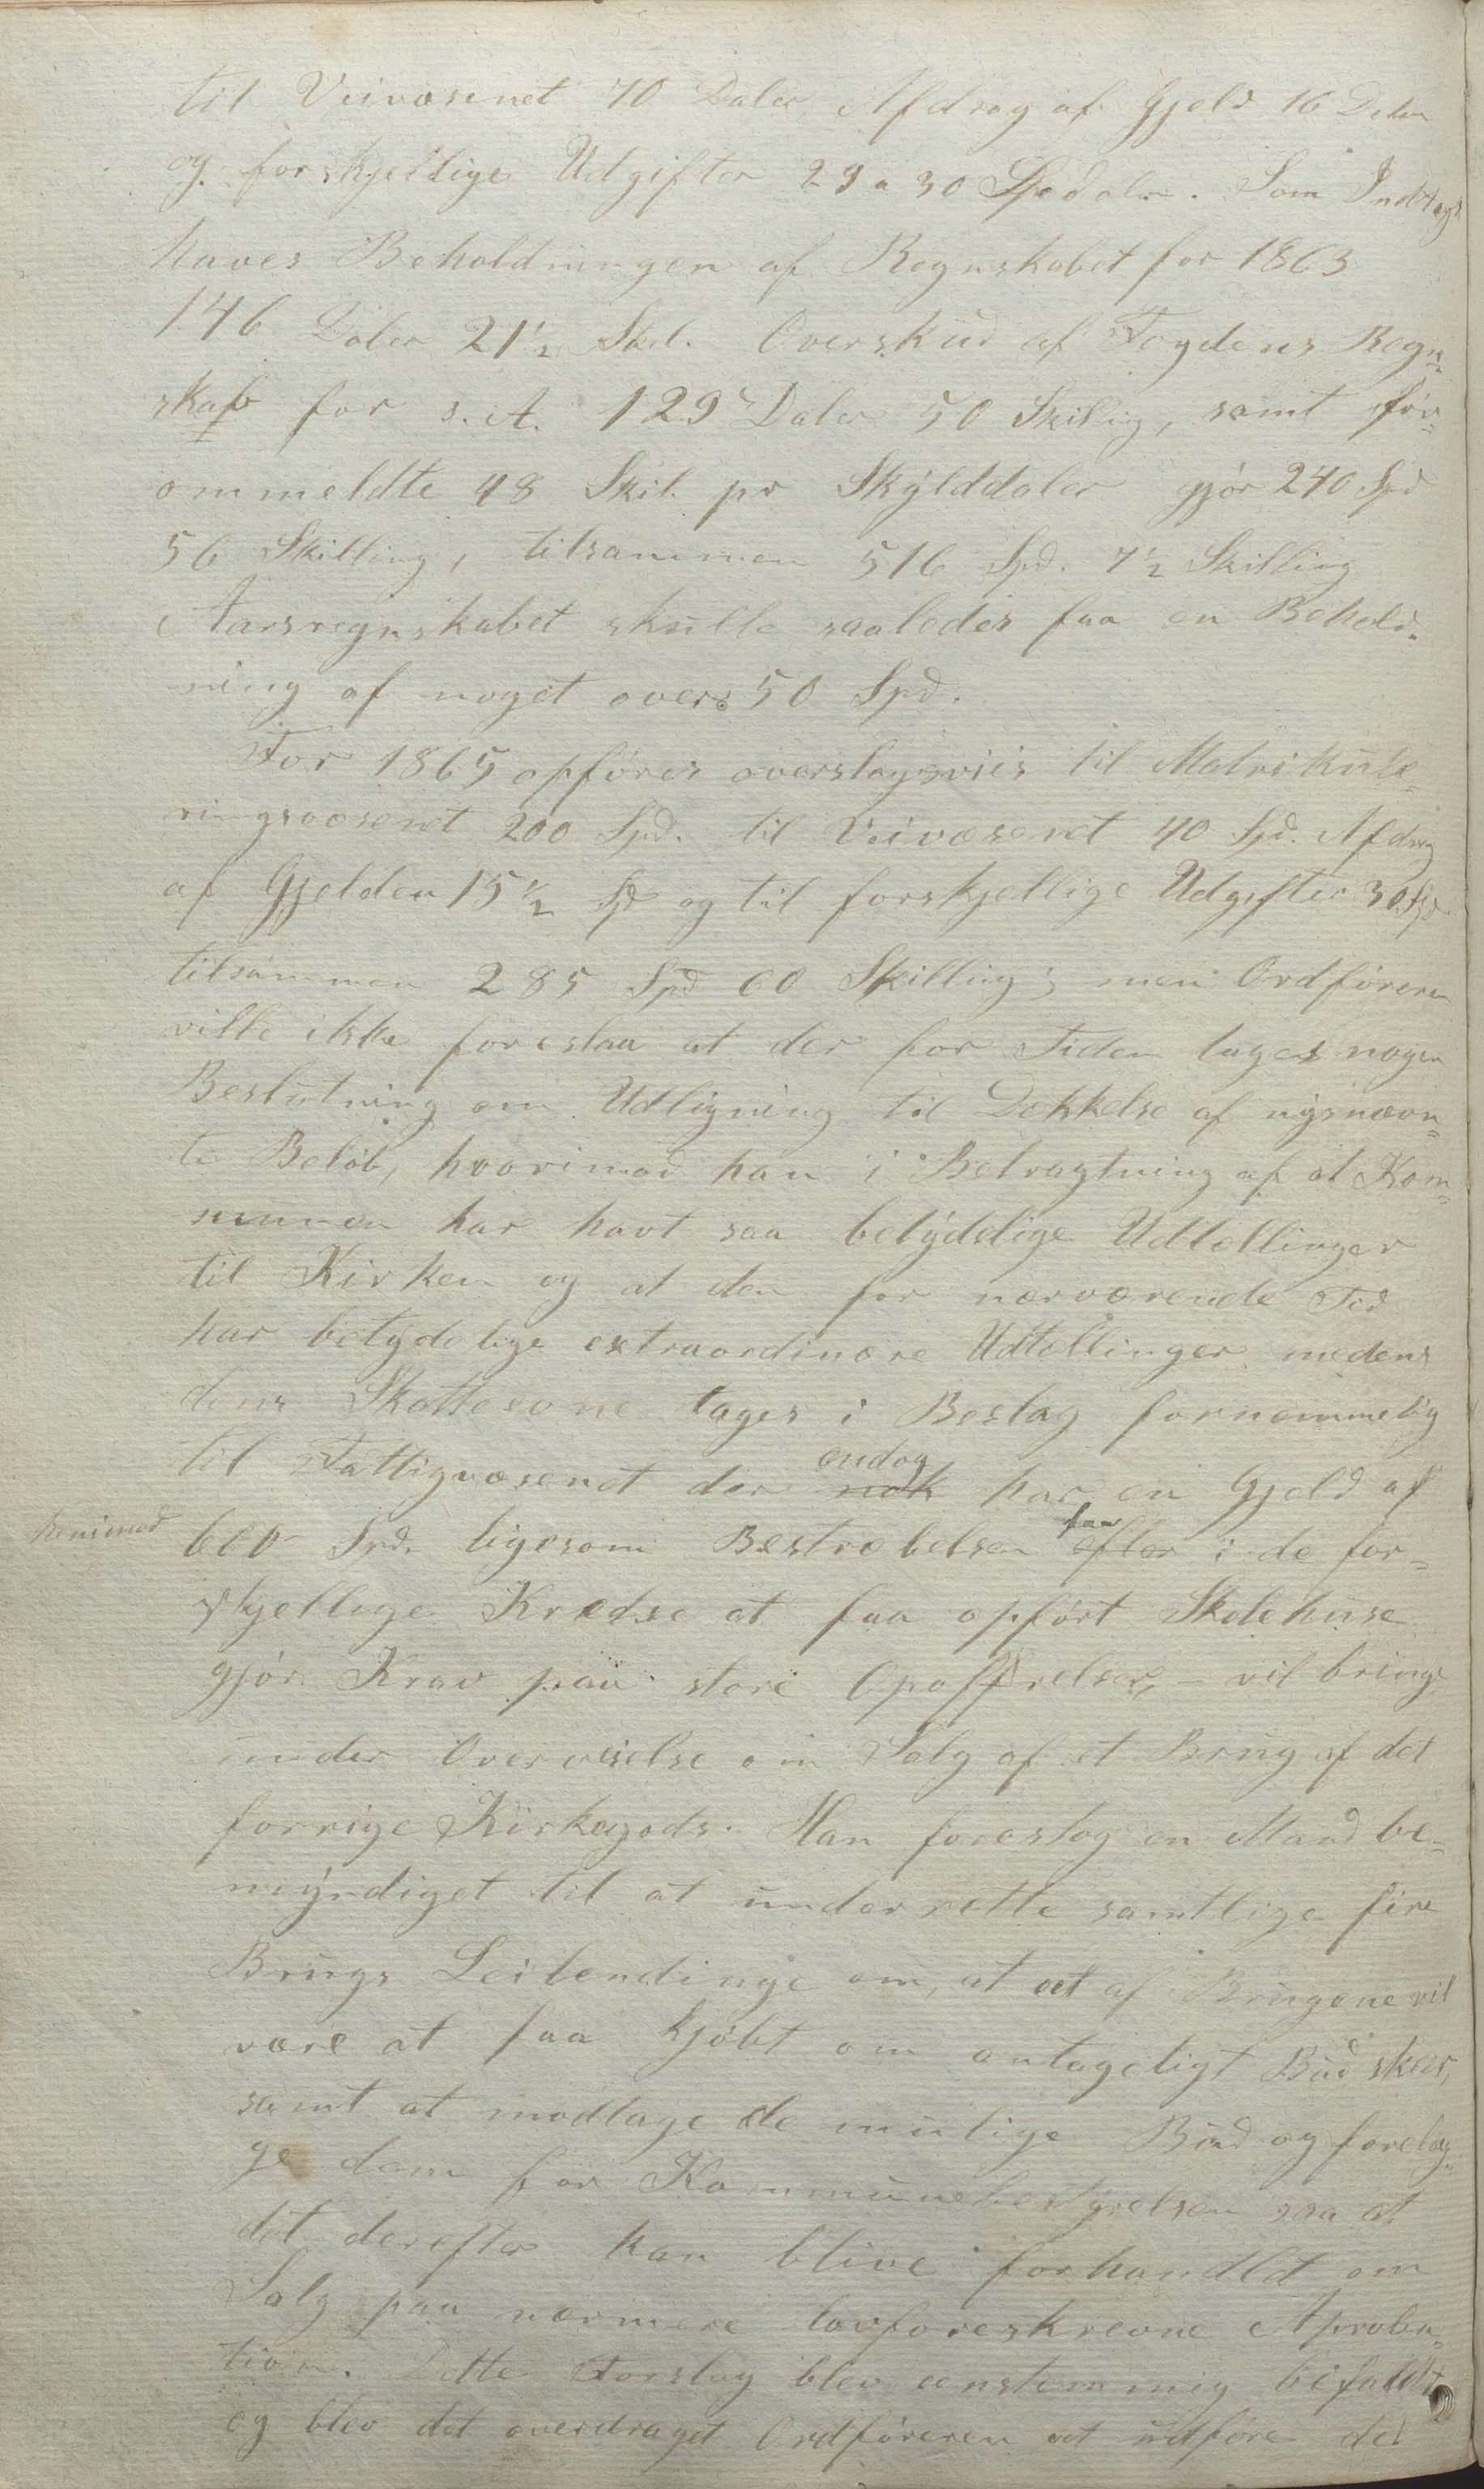 til Veivæsenet 70 Daler, Afdrag af Gjeld 16 Daler
og forskjellige Udgifter 29 a 30 Spdaler. Som Indtægt
haves Beholdningen af Regnskabet for 1863
146 Daler 21½ Skil. Overskud af Fogdens Regn-
skab for s. A. 129 Daler 50 Skilling, samt for-
ommeldte 48 Skil. pr Skylddaler gjør 240 Spd
56 Skilling, tilsammen 516 Spd. 7½ Skilling
Aarsregnskabet skulle saaledes faa en Behold-
ning af noget over 50 Spd.
For 1865 opføres overslagsviis til Matrikule-
ringsvæsenet 200 Spd. til Veivæsenet 40 Spd. Afdrag
af Gjelden 15½ Spd og til forskjellige Udgifter 30 Spd
tilsammen 285 Spd 60 Skilling; men Ordføreren
ville ikke foreslaa at der for Tiden tages nogen
Beslutning om Udligning til Dækkelse af nysnævn-
te Beløb, hvorimod han i Betragtning af at Kom-
munen har havt saa betydelige Udtællinger
til Kirken og at den for nærværende Tid
har betydelige extraordinære Udtællinger medens
dens Skatteevne tages i Beslag fornemmelig
til Fattigvæsenet der nok endog har en Gjeld af
henimod 600 Spd. ligesom Bestræbelsen efter i de for-
skjellige Kredse at faa opført Skolehuse
gjør Krav paa store Opoffrelser, – vil bringe
under Overveielse om Salg af et Brug af det
forrige Kirkegods. Han foreslog en Mand be-
myndiget til at underrette samtlige fire
Brugs Leilendinge om, at et af Brugene vil
være at faa kjøbt om antageligt Bud skeer,
samt at modtage de mulige Bud og forelæg-
ge dem for Kommunebestyrelsen saa at
det derefter kan blive forhandlet om
Salg paa nærmere lovforeskrevne Aproba-
tion. Dette Forslag blev eenstemmig bifaldt
og blev det overdraget Ordføreren at udføre det